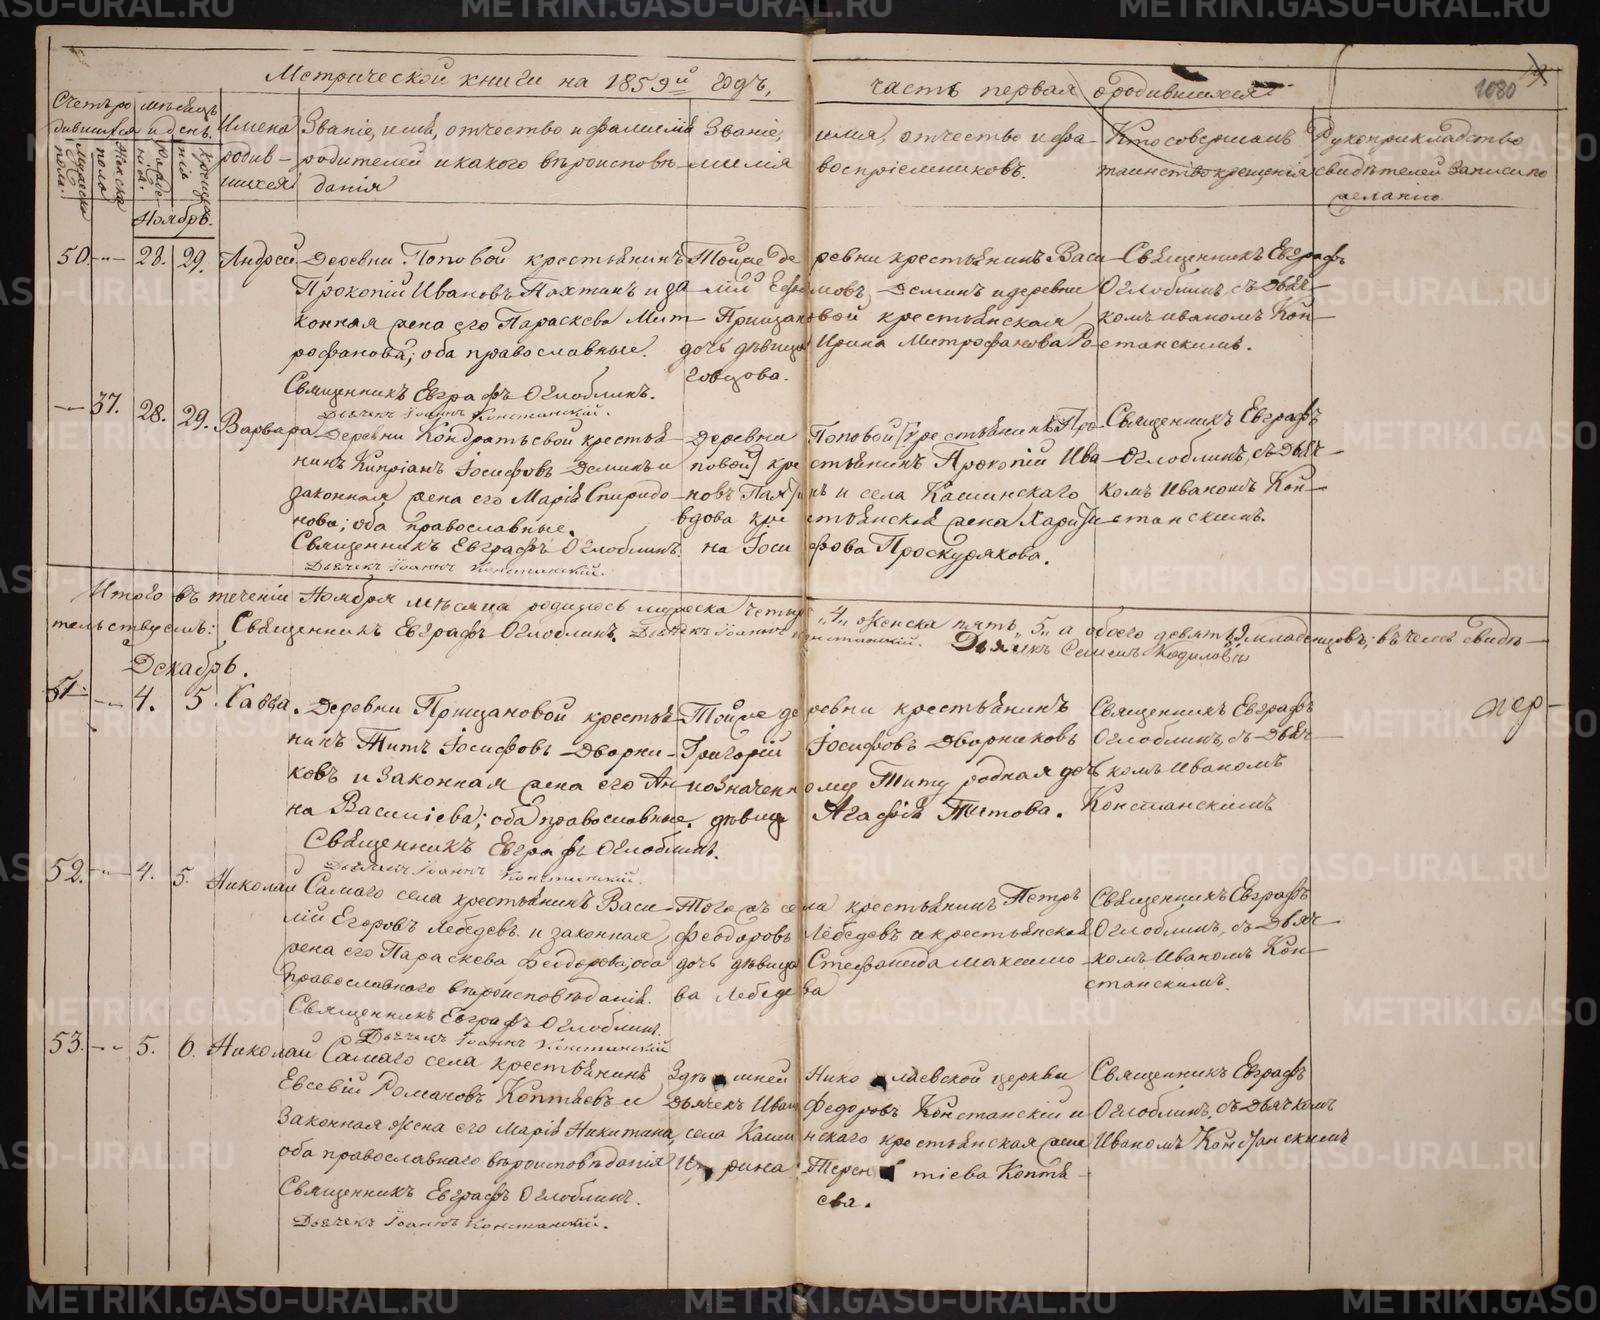 Метрической книги на 1859й годъ, часть первая о родившихся.
1080
Счетъ ро дившихся
мѣсяцъ и день.
Имена родив- шихся
Званіе, имя, отчество и фамилія родителей и какого вѣроисповѣ- данія
Званіе, имя, отчество и фа- милия воспріемниковъ.
Кто совершалъ таинство крещенія
Рукоприкладство свидѣтелей записи по желанію
Мужеска пола.
Женска пола
рожде- нія.
креще- нія
Ноябрь.
50. 28. 29. Андрей
Деревни Поповой крестьянинъ
Прокопій Ивановъ Пахтинъ и за
конная жена его Параскева Мит-
рофанова; оба православные.
Священникъ Евграфъ Оглоблинъ.
Дьячекъ Іоаннъ Констанскій.
Тойже деревни крестьянинъ Васи-
лій Ефимовъ Деминъ и деревни
Прищановой крестьянская
дочь дѣвица Ирина Митрофанова Ро-
говцова.
Священникъ Евграфъ
Оглоблинъ, съ дьяч-
комъ Иваномъ Кон-
станскимъ.
37. 28. 29. Варвара
Деревни Кондратьевой крестья-
нинъ Кипріанъ Іосифовъ Деминъ и
законная жена его Марія Спиридо-
нова; оба православные.
Священникъ Евграфъ Оглоблинъ.
Дьячекъ Іоаннъ Констанскій.
Деревни Поповой крестьянинъ Про-
повой крестьянинъ Прокопій Ива-
новъ Пахтинъ и села Кашинскаго
вдова крестьянская жена Харити-
на Іосифова Проскурякова.
Священникъ Евграфъ
Оглоблинъ, съ дьяч-
комъ Иваномъ Кон-
станскимъ.
Итого въ теченіи Ноября мѣсяца родилось мужеска четыре „4„ женска пять „5„ а обоего девять 9 младенцовъ; въ чемъ свидѣ-
тельствуемъ: Священникъ Евграфъ Оглоблинъ. Дьячекъ Іоаннъ Констанскій.
Декабрь.
51. 4. 5. Савва.
Деревни Прищановой крестья-
нинъ Титъ Іосифовъ Дворни-
ковъ и законная жена его Ан-
на Василіева; оба православные.
Священникъ Евграфъ Оглоблинъ.
Дьячекъ Іоаннъ Констанскій.
Тойже деревни крестьянинъ
Григорій Іосифовъ Дворниковъ
и означенному Титу родная дочь
дѣвица Агафія Титова.
Священникъ Евграфъ
Оглоблинъ, съ дьяч-
комъ Иваномъ
Констанскимъ
52. 4. 5. Николай
Самаго села крестьянинъ Васи-
лій Егоровъ Лебедевъ и законная
жена его Параскева Феодорова; оба
православнаго вѣроисповѣданія.
Священникъ Евграфъ Оглоблинъ.
Дьячекъ Іоаннъ Констанскій
Тогожъ села крестьянинъ Петръ
Феодоровъ Лебедевъ и крестьянская
дочь дѣвица Стефанида Максимо-
ва Лебедева
Священникъ Евграфъ
Оглоблинъ, съ дьяч-
комъ Иваномъ Кон-
станскимъ.
53. 5. 6. Николай
Самаго села крестьянинъ
Евсевій Романовъ Коптяевъ и
законная жена его Марія Никитина,
оба православнаго вѣроисповѣданія
Священникъ Евграфъ Оглоблинъ.
Дьячекъ Іоаннъ Констанскій.
Здѣшней Николаевской церкви
дьячекъ Иванъ Федоровъ Констанскій и
села Кашинскаго крестьянская жена
Ирина Терентіева Коптя-
ева.
Священникъ Евграфъ
Оглоблинъ, съ дьячкомъ
Иваномъ Констанскимъ